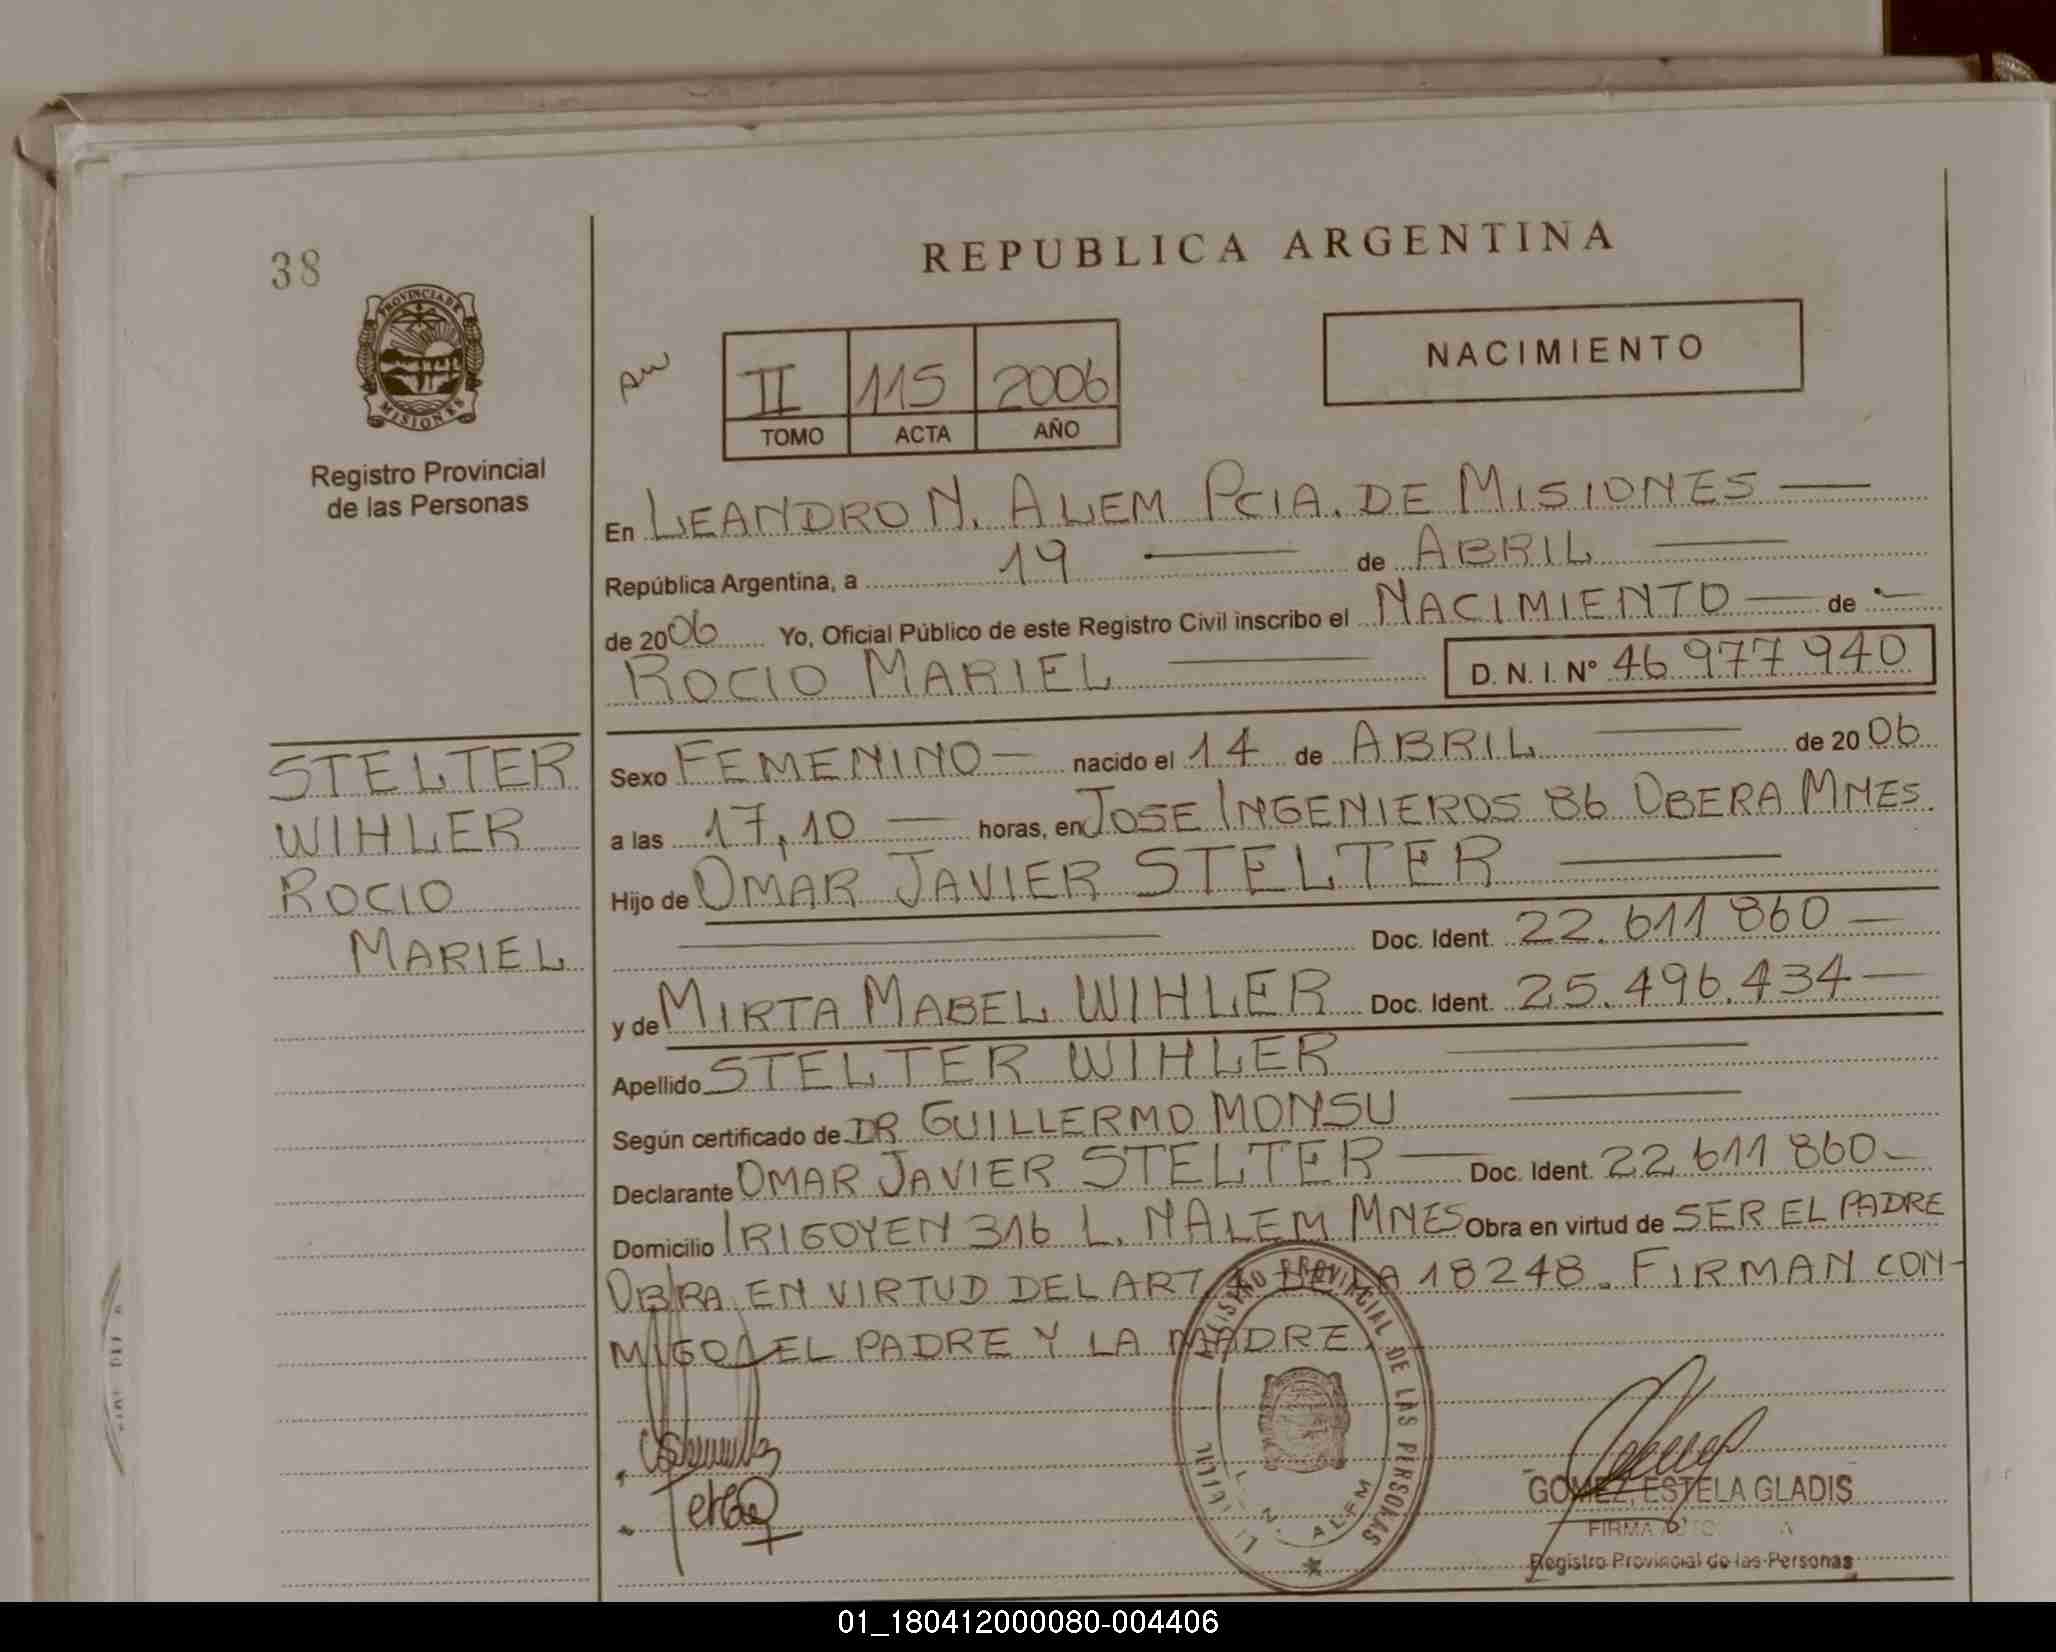 38
REPUBLICA ARGENTINA
PROVINCIA DE
MISIONES
Registro Provincial
de las Personas
II 115 2006
TOMO ACTA AÑO
NACIMIENTO
En LEANDRO N. ALEM PCIA. DE MISIONES
República Argentina, a 19 de ABRIL
de 2006 Yo, Oficial Público de este Registro Civil inscribo el NACIMIENTO de
ROCIO MARIEL D. N. I. Nº 46 977 940
STELTER
WIHLER
ROCIO
MARIEL
Sexo FEMENINO nacido el 14 de ABRIL de 2006
a las 17,10 horas, en JOSE INGENIEROS 86 OBERA MNES.
Hijo de OMAR JAVIER STELTER
Doc. Ident. 22.611 860
y de MIRTA MABEL WIHLER Doc. Ident. 25.496.434
Apellido STELTER WIHLER
Según certificado de DR GUILLERMO MONSU
Declarante OMAR JAVIER STELTER Doc. Ident. 22.611 860
Domicilio IRIGOYEN 316 L. N ALEM MNES Obra en virtud de SER EL PADRE
OBRA EN VIRTUD DEL ART 18248. FIRMAN CON-
MIGO EL PADRE Y LA MADRE
PROVINCIAL DE LAS PERSONAS
L. N. ALEM
GOMEZ, ESTELA GLADIS
FIRMA
Registro Provincial de las Personas
01_180412000080-004406